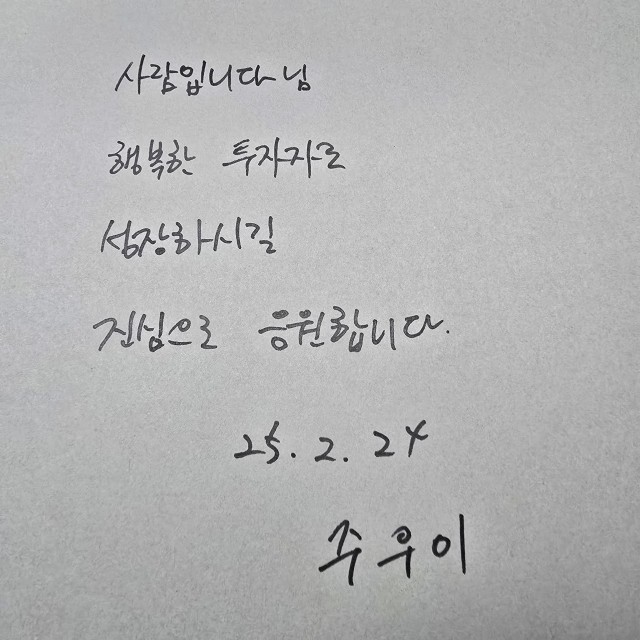 사람입니다님
행복한 투자자로
성장하시길
진심으로 응원합니다.
25. 2. 24
주우이